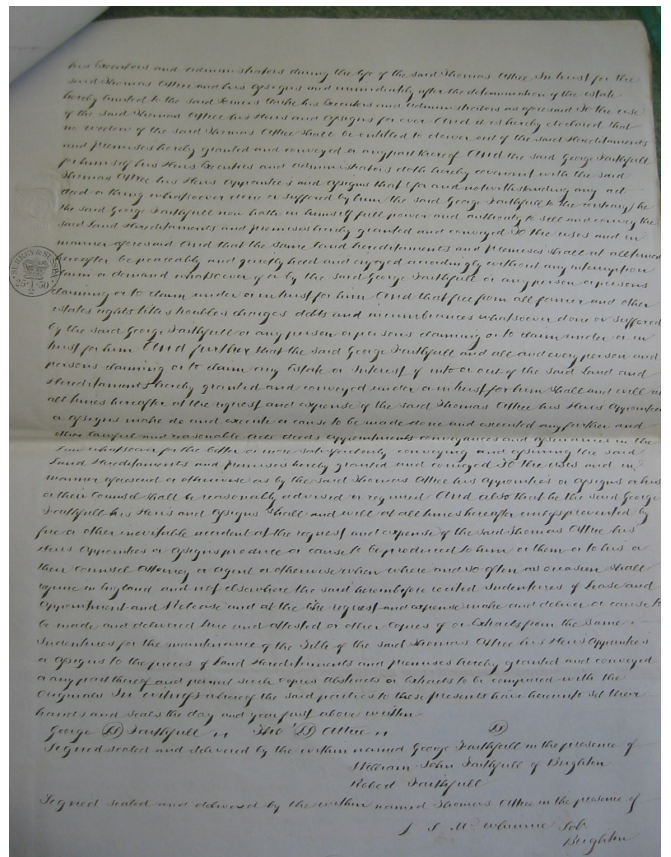 his Executors and Administrators during the life of the said Thomas Attree In trust for the
said Thomas Attree and his Assigns and immediately after the determination of the estate
hereby limited to the said his Executors and Administrators as aforesaid To the use
of the said Thomas Attree his Heirs and Assigns for ever And it is hereby declared that
no widow of the said Thomas Attree shall be entitled to dower out of the said Hereditaments
and Premises hereby granted and conveyed or any part thereof And the said George Faithfull
for himself his Heirs Executors and Administrators doth hereby covenant with the said
Thomas Attree his Heirs Appointees and Assigns that for and notwithstanding any act
deed or thing whatsoever done or suffered by him the said George Faithfull to the contrary he
the said George Faithfull now hath in himself full power and authority to sell and convey the
said Land Hereditaments and premises hereby granted and conveyed To the uses and in
manner aforesaid And that the same Land hereditaments and Premises shall at all times
hereafter be peaceably and quietly held and enjoyed accordingly without any interruption
claim or demand whatsoever of or by the said George Faithfull or any person or persons
claiming or to claim under or in trust for him And that free from all former and other
estates rights titles troubles charges debts and incumbrances whatsoever done or suffered
by the said George Faithfull or any person or persons claiming or to claim under or in
trust for him And further that the said George Faithfull and all and every person and
persons claiming or to claim any Estate or Interest of into or out of the said Land and
Hereditaments hereby granted and conveyed under or in trust for him shall and will at
all times hereafter at the request and expense of the said Thomas Attree his Heirs Appointees
or Assigns make do and execute or cause to be made done and executed any further and
other lawful and reasonable acts deeds Appointments conveyances and assurances in the
Law whatsoever for the better or more satisfactorily conveying and assuring the said
Land Hereditaments and premises hereby granted and conveyed To the uses and in
manner aforesaid or otherwise as by the said Thomas Attree his Appointees or Assigns or his
or their Counsel shall be reasonably advised or required And also that he the said George
Faithfull his Heirs and Assigns shall and will at all times hereafter unless prevented by
fire or other inevitable accident at the request and expense of the said Thomas Attree his
Heirs Appointees or Assigns produce or cause to be produced to him or them or to his or
their Counsel Attorney or Agent or otherwise when where and so often as occasion shall
require in England and not elsewhere the said hereinbefore recited Indentures of Lease and
Appointment and Release and at the like request and expense make and deliver or cause to
be made and delivered true and attested or other Copies of or Extracts from the same
Indentures for the maintenance of the Title of the said Thomas Attree his Heirs Appointees
or Assigns to the pieces of Land Hereditaments and premises hereby granted and conveyed
or any part thereof and permit such copies Abstracts or Extracts to be compared with the
Originals In witness whereof the said parties to these presents have hereunto set their
hands and seals the day and year first above written
George LS Faithfull Thos LS Attree LS
Signed sealed and delivered by the within named George Faithfull in the presence of
William John Faithfull of Brighton
Robert Faithfull
Signed sealed and delivered by the within named Thomas Attree in the presence of
Mc Whinnie Solr
Brighton
25.1.50